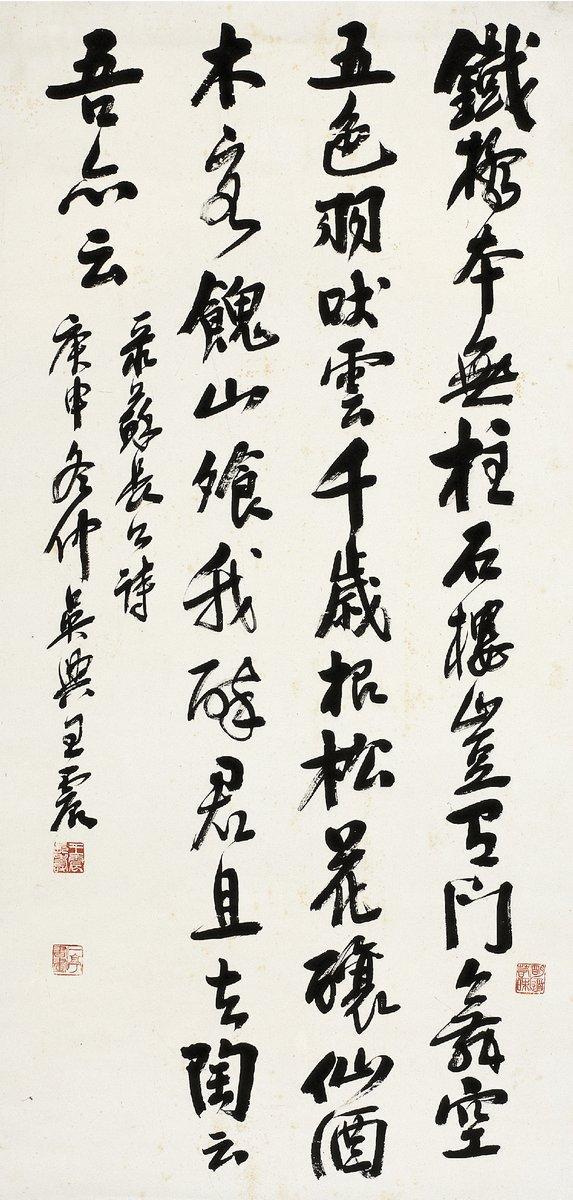 鐵橋本無柱石樓豈有門舞空
五色羽吠雲千歲根松花釀仙酒
木客餽山飧我醉君且去陶云
吾亦云
录蘇長公詩
庚申冬仲吳興王震